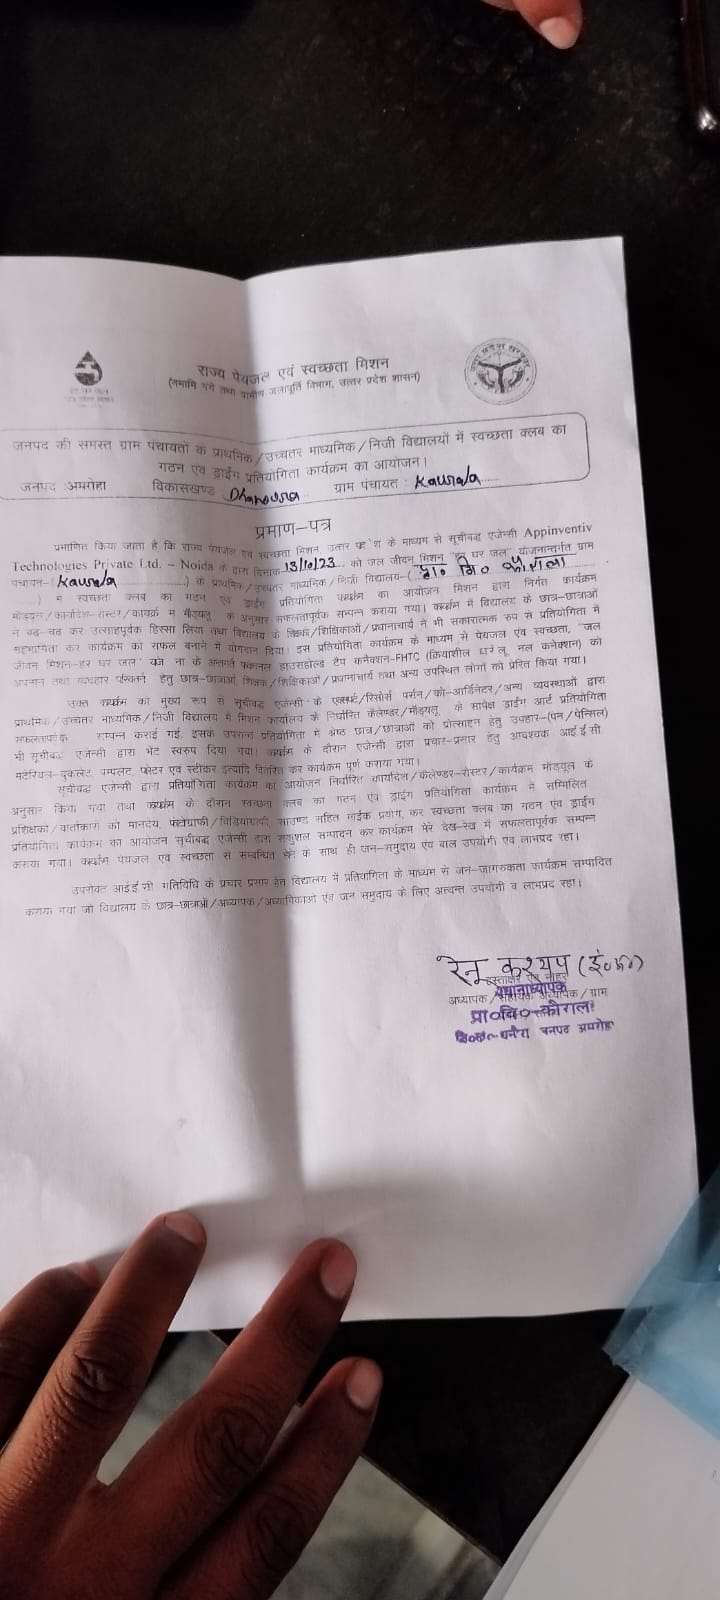 राज्य पेयजल एवं स्वच्छता मिशन
(नमामि गंगे तथा ग्रामीण जलापूर्ति विभाग, उत्तर प्रदेश शासन)
जनपद की समस्त ग्राम पंचायतों के प्राथमिक/उच्चतर माध्यमिक/निजी विद्यालयों में स्वच्छता क्लब का
गठन एवं ड्राईंग प्रतियोगिता कार्यक्रम का आयोजन।
जनपद :अमरोहा विकासखण्ड Dhanoura ग्राम पंचायत : Kaurala
प्रमाण-पत्र
प्रमाणित किया जाता है कि राज्य पेयजल एवं स्वच्छता मिशन, उत्तर के माध्यम से सूचीबद्ध एजेन्सी Appinventiv
Technologies Private Ltd. – Noida के द्वारा दिनांक 13/10/23 को जल जीवन मिशन "हर घर जल" योजनान्तर्गत ग्राम
पंचायत-(Kaurala) के प्राथमिक/उच्चतर माध्यमिक/निजी विद्यालय-(प्रा० वि० कौराला
) में स्वच्छता क्लब का गठन एवं ड्राईंग प्रतियोगिता का आयोजन मिशन द्वारा निर्गत कार्यक्रम
के अनुसार सफलतापूर्वक सम्पन्न कराया गया। में विद्यालय के छात्र-छात्राओं
ने बढ़-चढ़ कर उत्साहपूर्वक हिस्सा लिया तथा विद्यालय के शिक्षक/शिक्षिकाओं/प्रधानाचार्य ने भी सकारात्मक रुप से प्रतियोगिता में
सहभागिता कर कार्यक्रम को सफल बनाने में योगदान दिया। इस प्रतियोगिता कार्यक्रम के माध्यम से पेयजल एवं स्वच्छता, "जल
जीवन मिशन-हर घर जल" के अन्तर्गत हाउसहोल्ड टैप कनेक्शन-FHTC (क्रियाशील नल कनेक्शन) को
अपनाने तथा व्यवहार परिवर्तन हेतु छात्र-छात्राओं शिक्षक/शिक्षिकाओं/प्रधानाचार्य तथा अन्य उपस्थित लोगों को प्रेरित किया गया।
उक्त का मुख्य रूप से सूचीबद्ध एजेंन्सी के पर्सन/को-आर्डिनेटर/अन्य व्यवस्थाओं द्वारा
प्राथमिक/उच्चतर माध्यमिक/निजी विद्यालय में मिशन कार्यालय के निर्धारित के सापेक्ष ड्राईंग आर्ट प्रतियोगिता
सम्पन्न कराई गई, इसके उपरान्त प्रतियोगिता में श्रेष्ठ छात्र/छात्राओं को प्रोत्साहन हेतु उपहार-(पेन/पेन्सिल)
भी सूचीबद्ध एजेन्सी द्वारा भेंट स्वरुप दिया गया। के दौरान एजेन्सी द्वारा प्रचार-प्रसार हेतु आवश्यक आई ई सी
इत्यादि वितरित कर कार्यक्रम पूर्ण कराया गया।
सूचीबद्ध एजेंन्सी द्वारा प्रतियोगिता कार्यक्रम का आयोजन निर्धारित के
अनुसार किया गया तथा के दौरान स्वच्छता क्लब का गठन एवं ड्राईंग प्रतियोगिता कार्यक्रम में सम्मिलित
साउण्ड सहित माईक प्रयोग, कर स्वच्छता क्लब का गठन एवं ड्राईंग
प्रतियोगिता कार्यक्रम का आयोजन सूचीबद्ध एजेन्सी द्वारा सकुशल सम्पादन कर कार्यक्रम मेरे देख-रेख में सफलतापूर्वक सम्पन्न
कराया गया। पेयजल एवं स्वच्छता से सम्बन्धित होने के साथ ही जन-समुदाय एवं बाल उपयोगी एवं लाभप्रद रहा।
उपरोक्त आई ई सी गतिविधि के प्रचार प्रसार हेतु विद्यालय में प्रतियोगिता के माध्यम से जन-जागरुकता कार्यक्रम सम्पादित
कराया गया जो विद्यालय के छात्र-छात्राओं/अध्यापक/अध्यापिकाओं एवं जन समुदाय के लिए अत्यन्त उपयोगी व लाभप्रद रहा।
रेनू कश्यप (इं०प्र०)
हस्ताक्षर एवं मोहर
प्रधानाध्यापक
अध्यापक/सहायक अध्यापक/ग्राम
प्रा०वि०-कौराला
वि०ख०-धनौरा जनपद अमरोहा